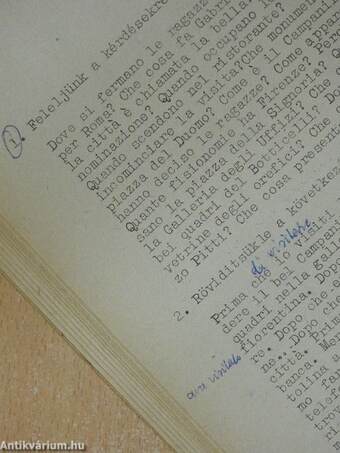 1. Feleljünk a kérdésekre
Dove si fermano le ragazz
per Roma? Che cosa fa Gabri
la città è chiamata la bella.
nominazione? Quando occupano i
Quando scendono nel ristorante?
incominciare la visita? Che monument
piazza del Duomo? Come è il Campanil
hanno deciso le ragazze? Come appar
Quante fisionomie ha Firenze? Perc
ssano la piazza della Signoria?
la Galleria degli Uffizi? Che
bei quadri del Botticelli? Do
vetrine degli orefici? Che
zo Pitti? Che cosa presente
2. Rövidítsük le a következ
Prima che lo visiti
dere il bel Campan
quadri nella gall
fiorentina.
re. Dopo che
ne.. Dopo che
città. Prim
banca. Me
tolina
mo fa
teler
trov
Antikvárium.hu